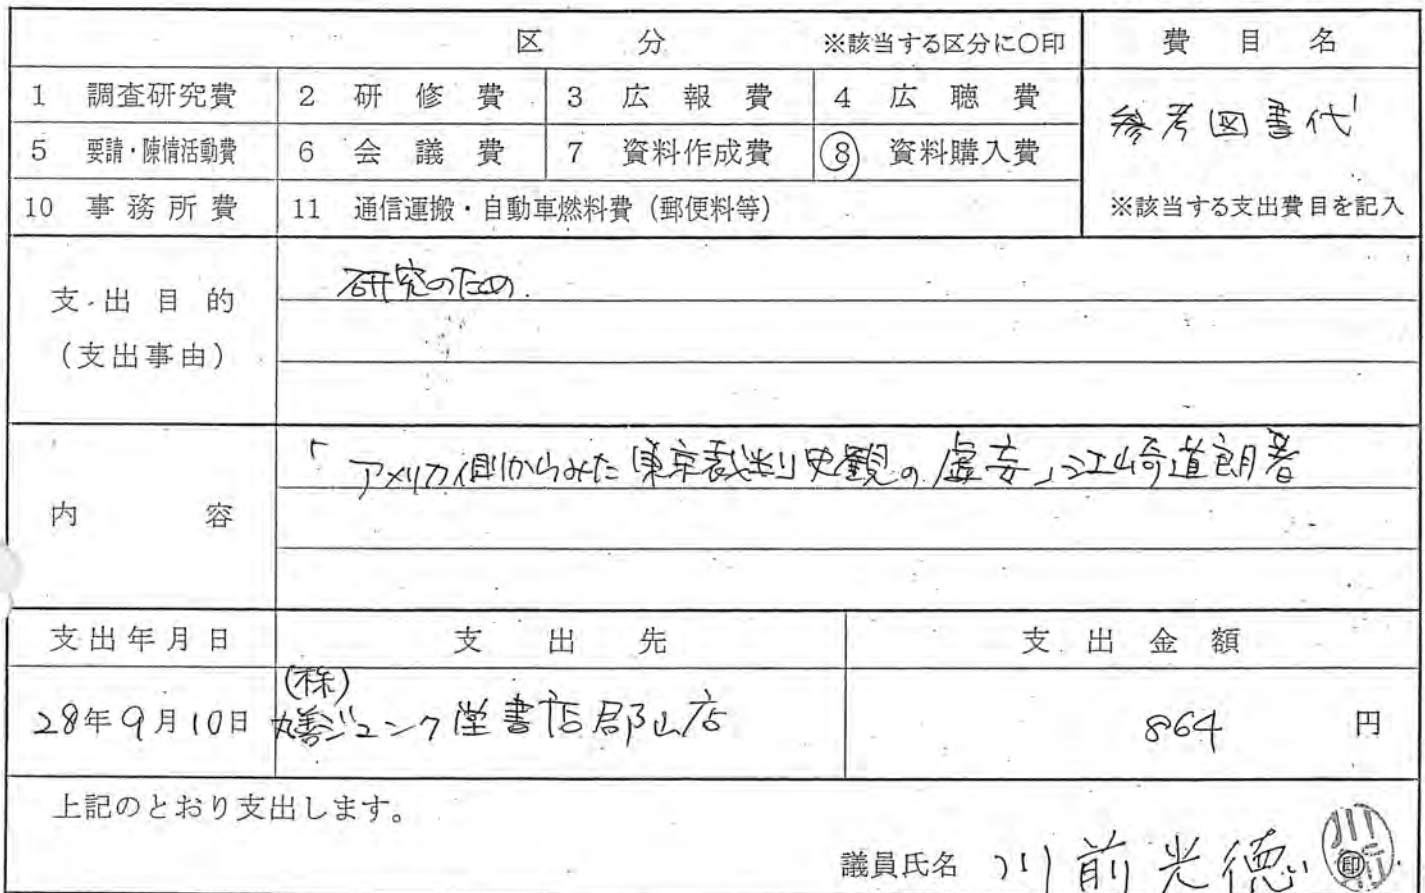 区 分 ※該当する区分に○印 費 目 名
1 調査研究費 2 研 修 費 3 広 報 費 4 広 聴 費
参考図書代
5 要請・陳情活動費 6 会 議 費 7 資料作成費 ⑧ 資料購入費
10 事 務 所 費 11 通信運搬・自動車燃料費（郵便料等） ※該当する支出費目を記入
研究のため
支 出 目 的
（支出事由）
「アメリカ側からみた東京裁判史観の虚妄」江崎道朗著
内 容
支出年月日 支 出 先 支 出 金 額
(株)
28年9月10日 丸善ジュンク堂書店郡山店 864 円
上記のとおり支出します。
議員氏名 川前光徳 ㊞